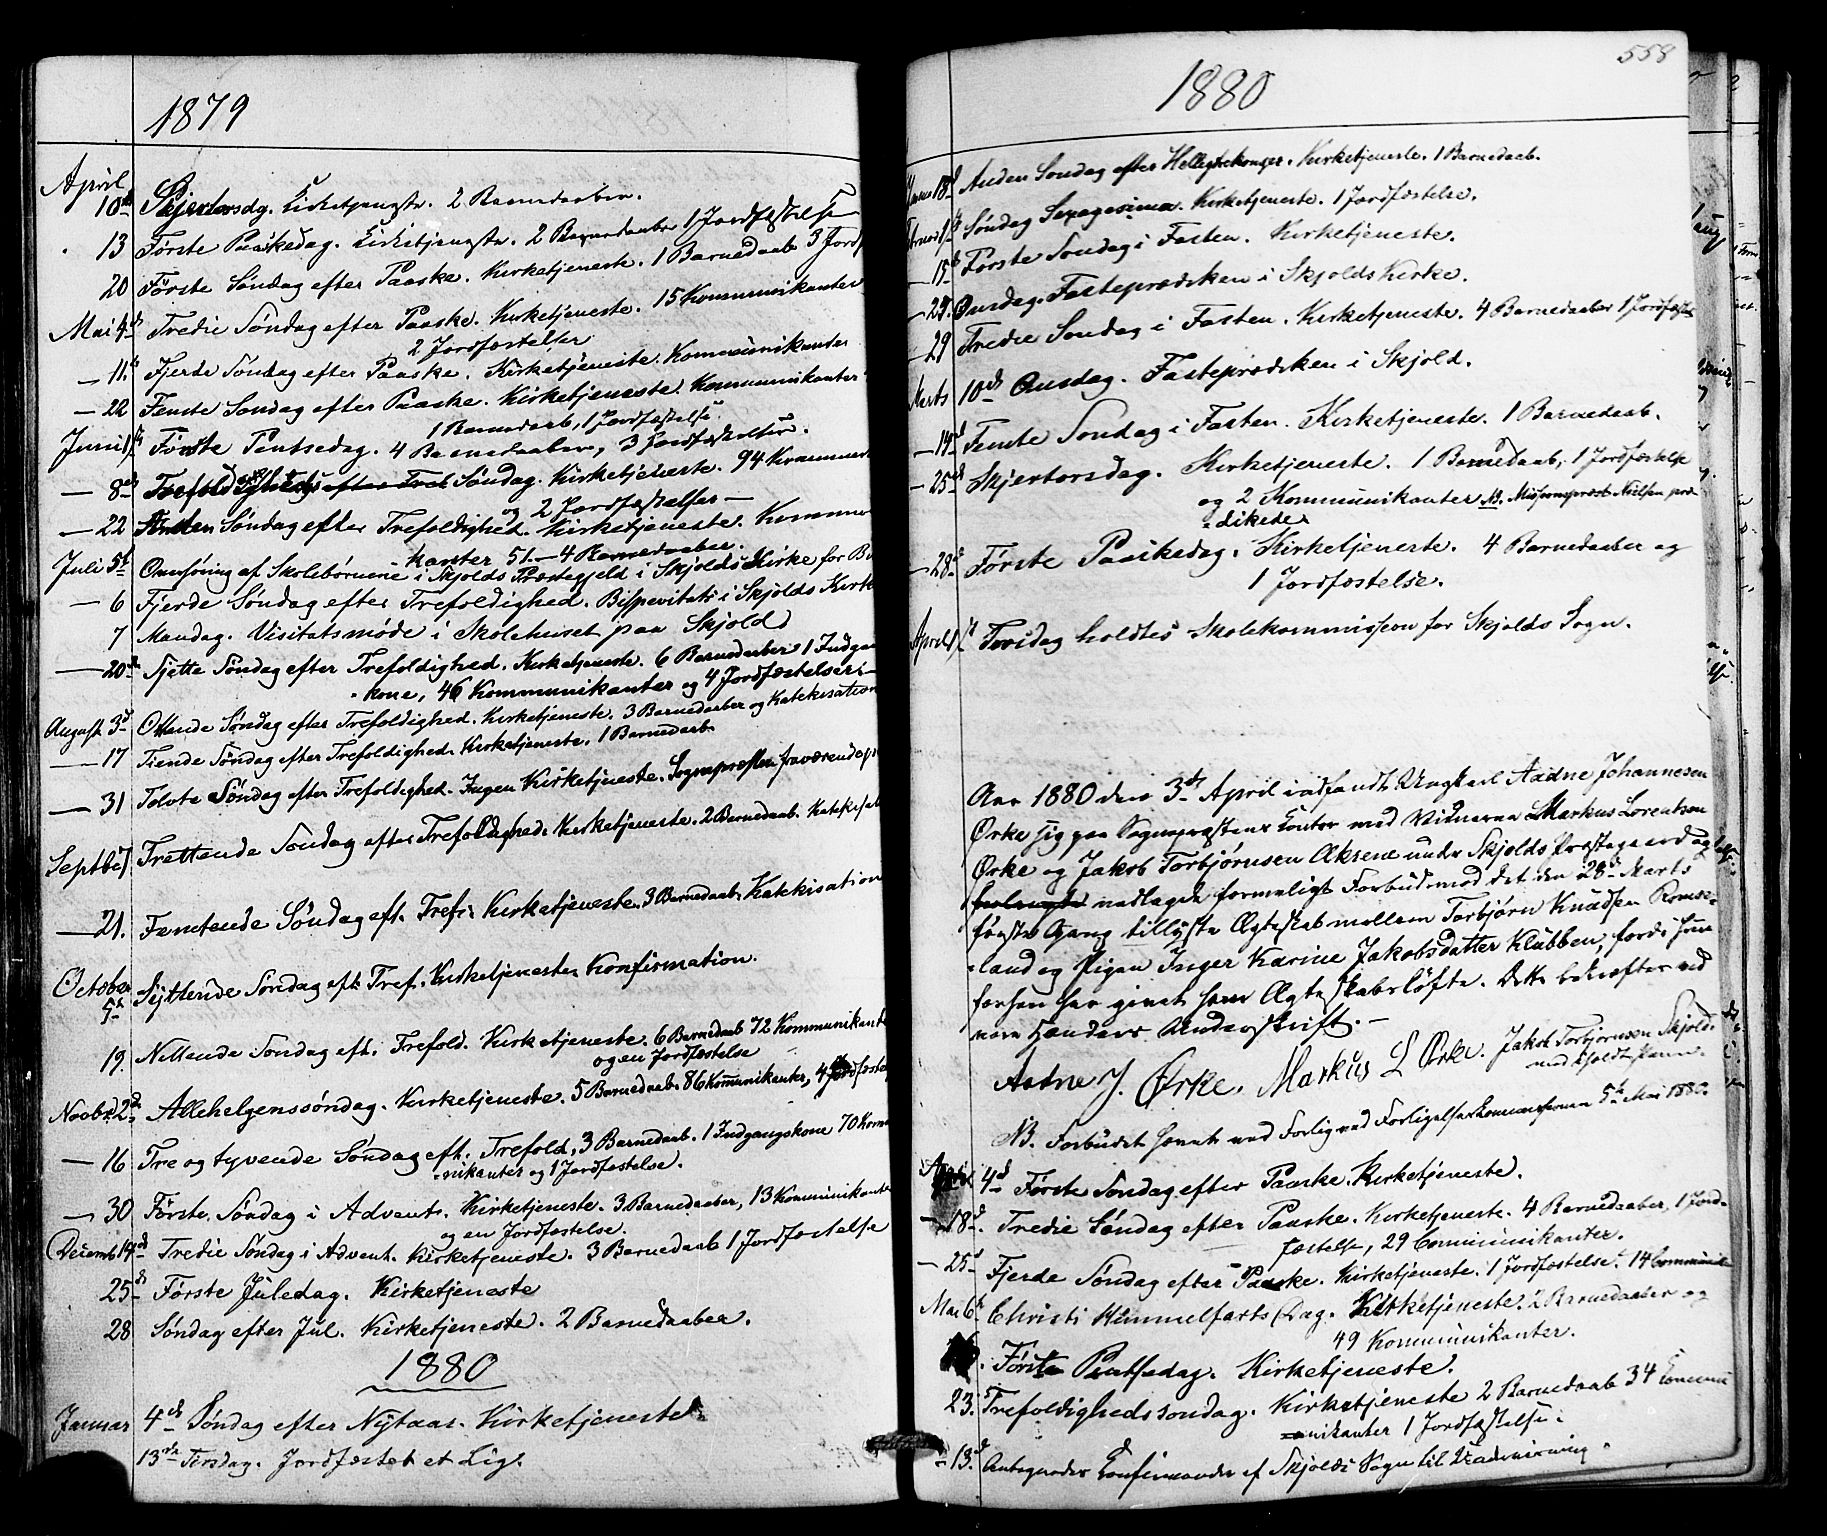 1879
April
10de Skjertorsdg. Kirketjeneste. 2 Barnedaaber.
13 Første Paaskedag. Kirketjeneste. 2 Barnedaabe 1 Jordfæstelse
20 Første Søndag efter Paaske. Kirketjeneste. 1 Barnedaab 3 Jordf
Mai 4de Tredie Søndag efter Paaske. Kirketjeneste. 15 Kommunikanter
2 Jordfæstelser
— 11te Fjerde Søndag efter Paaske. Kirketjeneste. Kommunikanter
— 22 Femte Søndag efter Paaske. Kirketjeneste. Kommunikanter
1 Barnedaab, 1 Jordfæstelse.
Juni 1ste Første Pintsedag. 4 Barnedaaber, 3 Jordfæstelser.
— 8de Trefoldigheds efter Tref Søndag. Kirketjeneste. 94 Kommu
og 2 Jordfæstelser —
— 22 Anden Søndag efter Trefoldighed. Kirketjeneste. Kommu
kanter 51. — 4 Barnedaaber.
Juli 5te Overhøring af Skolebørnene i Skjolds Præstegjeld i Skjolds Kirke for B
— 6 Fjerde Søndag efter Trefoldighed. Bispevisitats i Skjolds Kirke
7 Mandag. Visitatsmøde i Skolehuset paa Skjold
— 20de Sjette Søndag efter Trefoldighed. Kirketjeneste. 6 Barnedaaber 1 Indgan
kone, 46 Kommunikanter og 4 Jordfæstelser. —
August 3de Ottende Søndag efter Trefoldighed. Kirketjeneste. 3 Barnedaaber og Katekisation
— 17 Tiende Søndag efter Trefoldighed. Kirketjeneste. 1 Barnedaab.
— 31 Tolvte Søndag efter Trefoldighed. Ingen Kirketjeneste. Sognepræsten fraværende
Septbr 7. Trettende Søndag efter Trefoldighed. Kirketjeneste. 2 Barnedaab. Katekisat
— 21. Femtende Søndag eft. Tref. Kirketjeneste. 3 Barnedaab. Katekisation
October
5te Syttende Søndag eft. Tref. Kirketjeneste. Konfirmation.
19. Nittende Søndag eft. Trefold. Kirketjeneste. 6 Barnedaab 72 Kommunikante
og en Jordfæstelse
Novbr. 2de Allehelgenssøndag. Kirketjeneste. 5 Barnedaab. 86 Kommunikanter, 4 Jordfæstels
— 16 Tre og tyvende Søndag eft. Trefold, 3 Barnedaab. 1 Indgangskone 70 Komm
nikanter og 1 Jordfæstelse.
— 30 Første Søndag i Advent. Kirketjeneste. 3 Barnedaaber, 13 Kommunikante
og en Jordfæstelse.
Decemb 14de Tredie Søndag i Advent. Kirketjeneste. 3 Barnedaab 1 Jordfæstelse
25de Første Juledag. Kirketjeneste
28 Søndag efter Jul. Kirketjeneste. 2 Barnedaaber.
1880
Januar 4de Søndag efter Nytaar. Kirketjeneste.
13de Tirsdag. Jordfæstet et Lig.
558
1880
18de Anden Søndag efter Helligtrekonger. Kirketjeneste. 1 Barnedaab.
1ste Søndag Sexagesima. Kirketjeneste. 1 Jordfæstelse.
— 15de Første Søndag i Fasten. Kirketjeneste.
— Onsdag. Fasteprædiken i Skjolds Kirke.
— 29 Tredie Søndag i Fasten. Kirketjeneste. 4 Barnedaaber 1 Jordfæst
Marts 10de Onsdag. Fasteprædiken i Skjold.
— 14de Femte Søndag i Fasten. Kirketjeneste. 1 Barnedaab.
— 25de Skjertorsdag. Kirketjeneste. 1 Barnedaab, 1 Jordfæstelse
og 2 Kommunikanter NB. Missionspræst Nielsen præ-
dikede
— 28de Første Paaskedag. Kirketjeneste. 4 Barnedaaber og
1 Jordfæstelse.
April 1ste Torsdag holdtes Skolekommission for Skjolds Sogn.
Aar 1880 den 3de April indfandt Ungkarl Aadne Johannesen
Ørke sig paa Sognepræstens Contor med Vidnerne Markus Lorentsen
Ørke og Jakob Torbjørnsen Øksene under Skjolds Præstegaard og
forlangte nedlagde formeligt Forbud mod det den 28de Marts
første Gang tillyste Ægteskab mellem Torbjørn Knudsen Romse-
land og Pigen Inger Karine Jakobsdatter Klubben, fordi hun
forhen har givet ham Ægteskabsløfte. Dette bekræftes ved
vore Hænders Underskrift. —
Aadne J. Ørke. Markus L Ørke. Jakob Torbjørnsen Skjold.
med ført Pen.
NB. Forbudet hævet ved Forlig ved Forligelseskommissionen 5te Mai 1880.
April 4de Første Søndag efter Paaske. Kirketjeneste.
— 18de. Tredie Søndag efter Paaske. Kirketjeneste. 4 Barnedaaber, 1 Jord-
fæstelse, 29 Communikanter.
— 25de Fjerde Søndag efter Paaske. Kirketjeneste. 1 Jordfæstelse. 14 Communik
Mai 6te Christi Himmelfarts Dag. Kirketjeneste. 2 Barnedaaber og
49 Kommunikanter.
16. Første Pintsedag. Kirketjeneste.
23. Trefoldighedssøndag. Kirketjeneste 2 Barnedaab 34 Commu
nikanter 1 Jordfæstelse.
13de Antegnedes Confirmander af Skjolds Sogn til Undervisning.